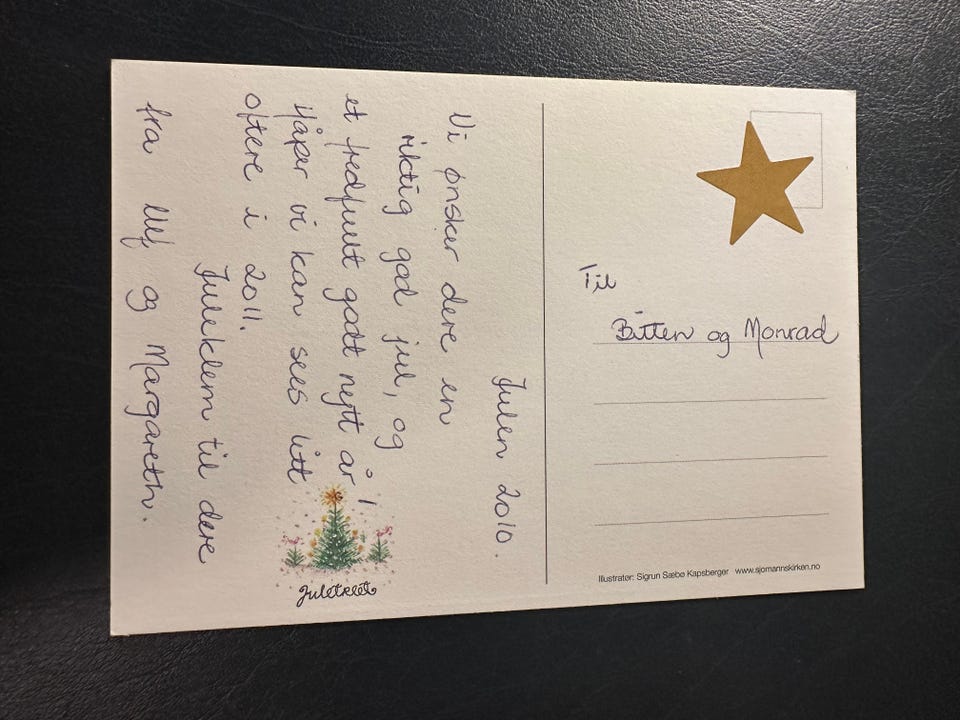 Julen 2010.
Vi ønsker dere en
riktig god jul, og
et fredfullt godt nytt år!
Håper vi kan sees litt
oftere i 2011.
Juleklem til dere
fra Ulf og Margareth.
Juletreet
Til
Bitten og Monrad
Illustratør: Sigrun Sæbø Kapsberger www.sjomannskirken.no